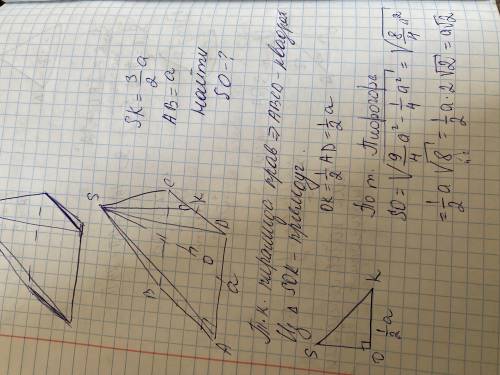 SK = 3/2 a
AB = a
Найти
SO - ?
S
C
K
B
D
O
A
a
Т.к. пирамида прав ⇒ ABCD - квадрат
Из Δ SOK - прямоуг.
OK = 1/2 AD = 1/2 a
S
O
K
1/2 a
По т. Пифагора
SO = √(9/4 a² - 1/4 a²) = √(8/4 a²)
= 1/2 a √8 = 1/2 a · 2√2 = a√2